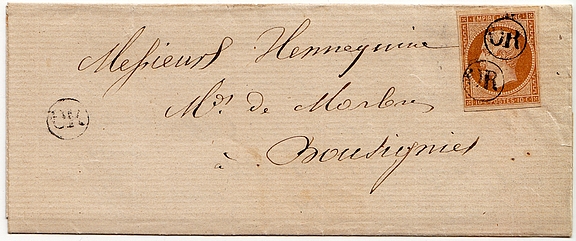 Messieurs Hennequine
Mds. de Marbres
à Bousignies
EMPIRE FRANC
POSTES 10 C
OR
OR
OR